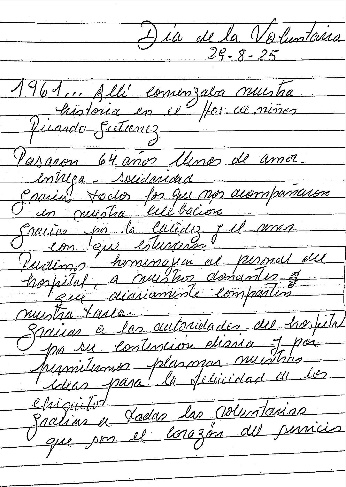 Día de la Voluntaria
29-8-25
1961... Allí comenzaba nuestra
historia en el Hos. de niños
Ricardo Gutierrez
Pasaron 64 años llenos de amor.
entrega - solidaridad
Gracias todos los que nos acompañaron
en nuestra celebacion
Gracias por la calidez y el amor
con que estuvieron
homenajear al personal del
hospital, a nuestros donantes y
que diariamente comparten
nuestra tarea.
Gracias a las autoridades del hospital
por su contencion diaria y por
permitirnos plasmar nuestras
ideas para la felicidad de los
chiquitos
Gracias a todas las voluntarias
que son el corazón del servicio